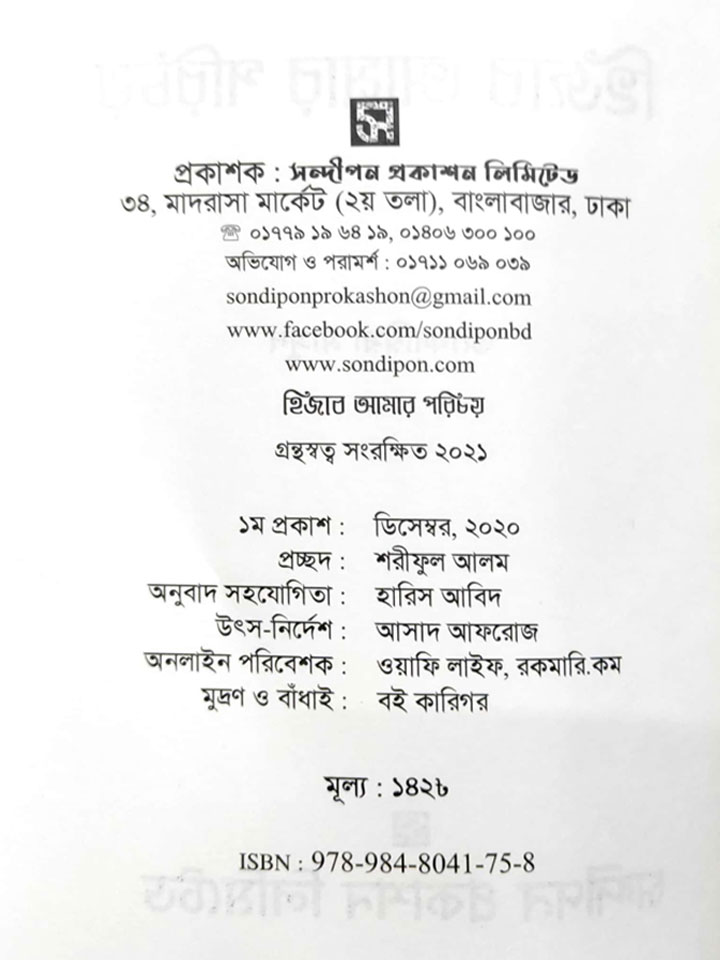 প্রকাশক : সন্দীপন প্রকাশন লিমিটেড
৩৪, মাদরাসা মার্কেট (২য় তলা), বাংলাবাজার, ঢাকা
☏ ০১৭৭৯ ১৯ ৬৪ ১৯, ০১৪০৬ ৩০০ ১০০
অভিযোগ ও পরামর্শ : ০১৭১১ ০৬৯ ০৩৯
sondiponprokashon@gmail.com
www.facebook.com/sondiponbd
www.sondipon.com
হিজাব আমার পরিচয়
গ্রন্থস্বত্ব সংরক্ষিত ২০২১
১ম প্রকাশ : ডিসেম্বর, ২০২০
প্রচ্ছদ : শরীফুল আলম
অনুবাদ সহযোগিতা : হারিস আবিদ
উৎস-নির্দেশ : আসাদ আফরোজ
অনলাইন পরিবেশক : ওয়াফি লাইফ, রকমারি.কম
মুদ্রণ ও বাঁধাই : বই কারিগর
মূল্য : ১৪২৳
ISBN : 978-984-8041-75-8